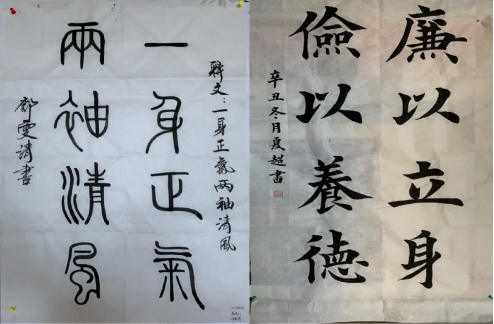 一身正氣
兩袖清風
聯文：一身正氣两袖清风
書
廉以立身
儉以養德
辛丑冬月夏超書